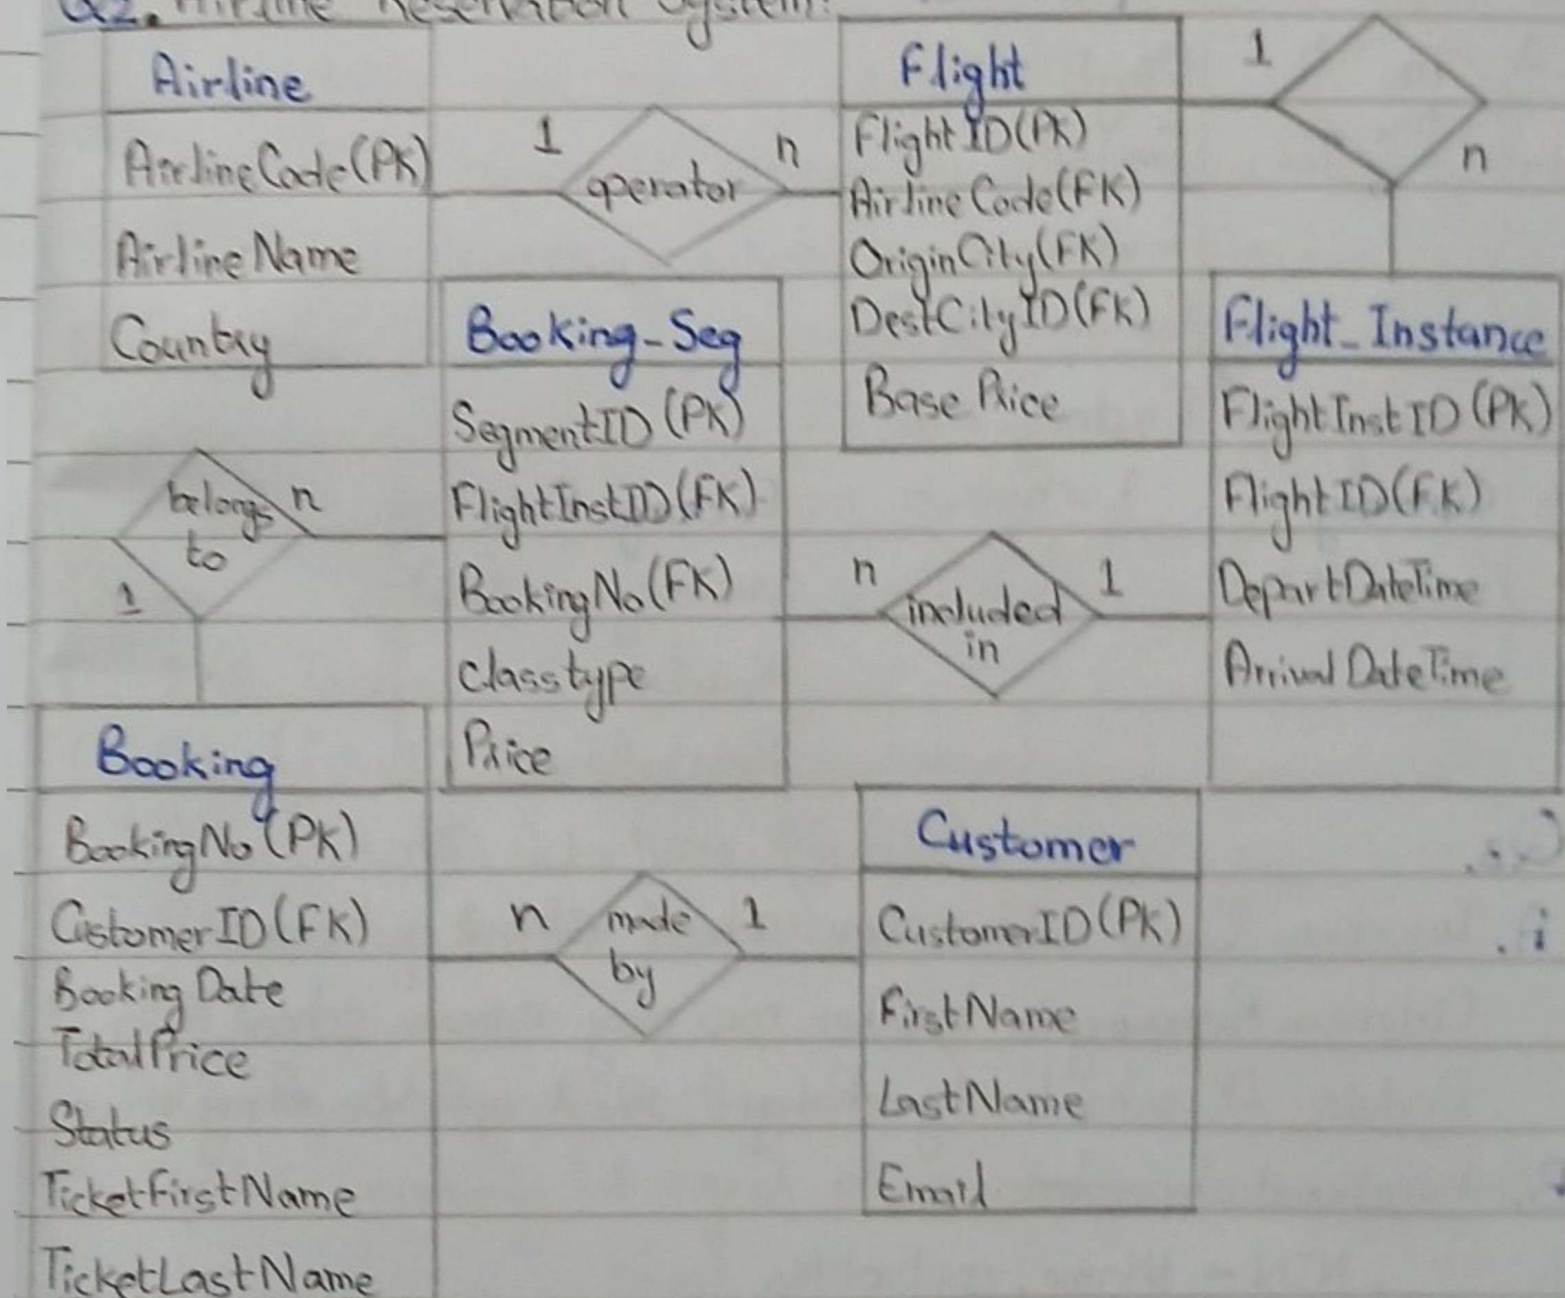 Q2. Airline Reservation System:
Airline
AirlineCode(PK)
AirlineName
Country
1
operator
n
Flight
FlightID(PK)
AirlineCode(FK)
OriginCity(FK)
DestCityID(FK)
Base Price
1
n
Flight_Instance
FlightInstID(PK)
FlightID(FK)
DepartDateTime
ArrivalDateTime
Booking-Seg
SegmentID(PK)
FlightInstID(FK)
BookingNo(FK)
classtype
Price
belongs
to
n
1
n
included
in
1
Booking
BookingNo(PK)
CustomerID(FK)
Booking Date
TotalPrice
Status
TicketFirstName
TicketLastName
n
made
by
1
Customer
CustomerID(PK)
FirstName
LastName
Email